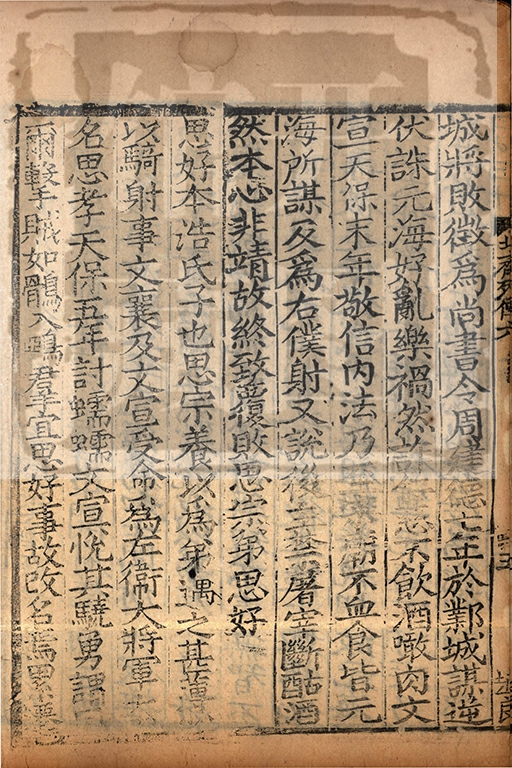 城將敗徵為尚書令周建德七年於鄴城謀逆
伏誅元海好亂樂禍然詐仁慈不飲酒噉肉文
宣天保末年敬信內法乃至宗廟不血食皆元
海所謀及為右僕射又說後主禁屠宰斷酤酒
然本心非靖故終致覆敗思宗弟思好
思好本浩氏子也思宗養以為弟遇之甚薄
以騎射事文襄及文宣受命為左衛大將軍本
名思孝天保五年討蠕蠕文宣悅其驍勇謂
爾擊賊如鶻入鵶羣宜思好事故改名焉累遷
北齊列傳六